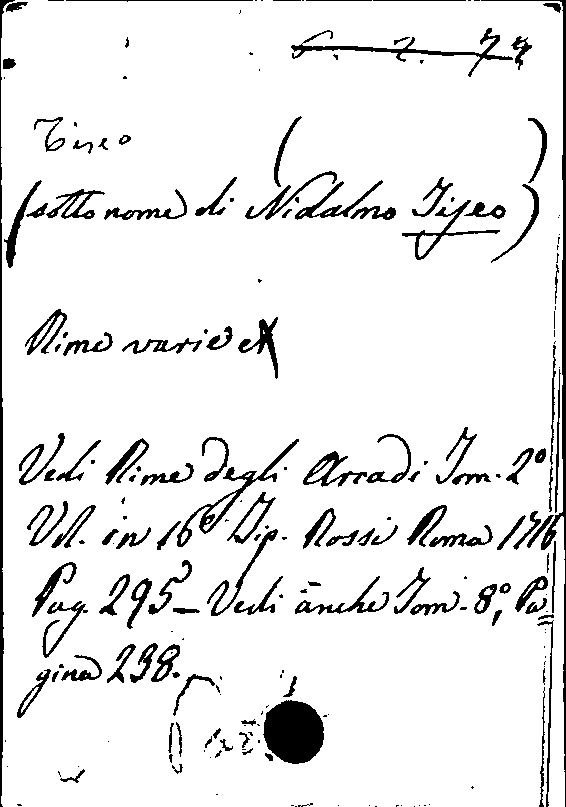 6. 2. 74
Tiseo ( )
(sotto nome di Nidalmo Tiseo)
Rime varie
Vedi Rime degli Arcadi Tom. 2º
Vol. in 16º Tip. Rossi Roma 1716
Pag. 295 – Vedi anche Tom. 8º, Pa
gina 238.